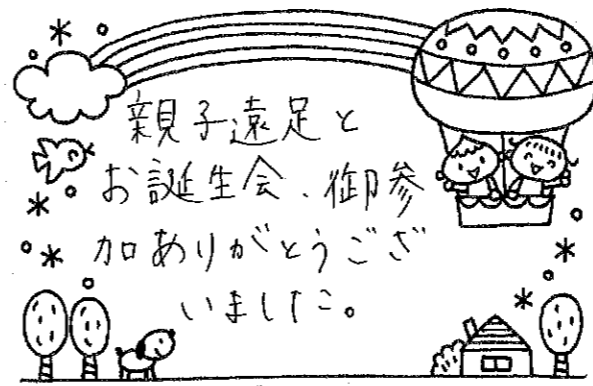 親子遠足と
お誕生会、御参
加ありがとうござ
いました。